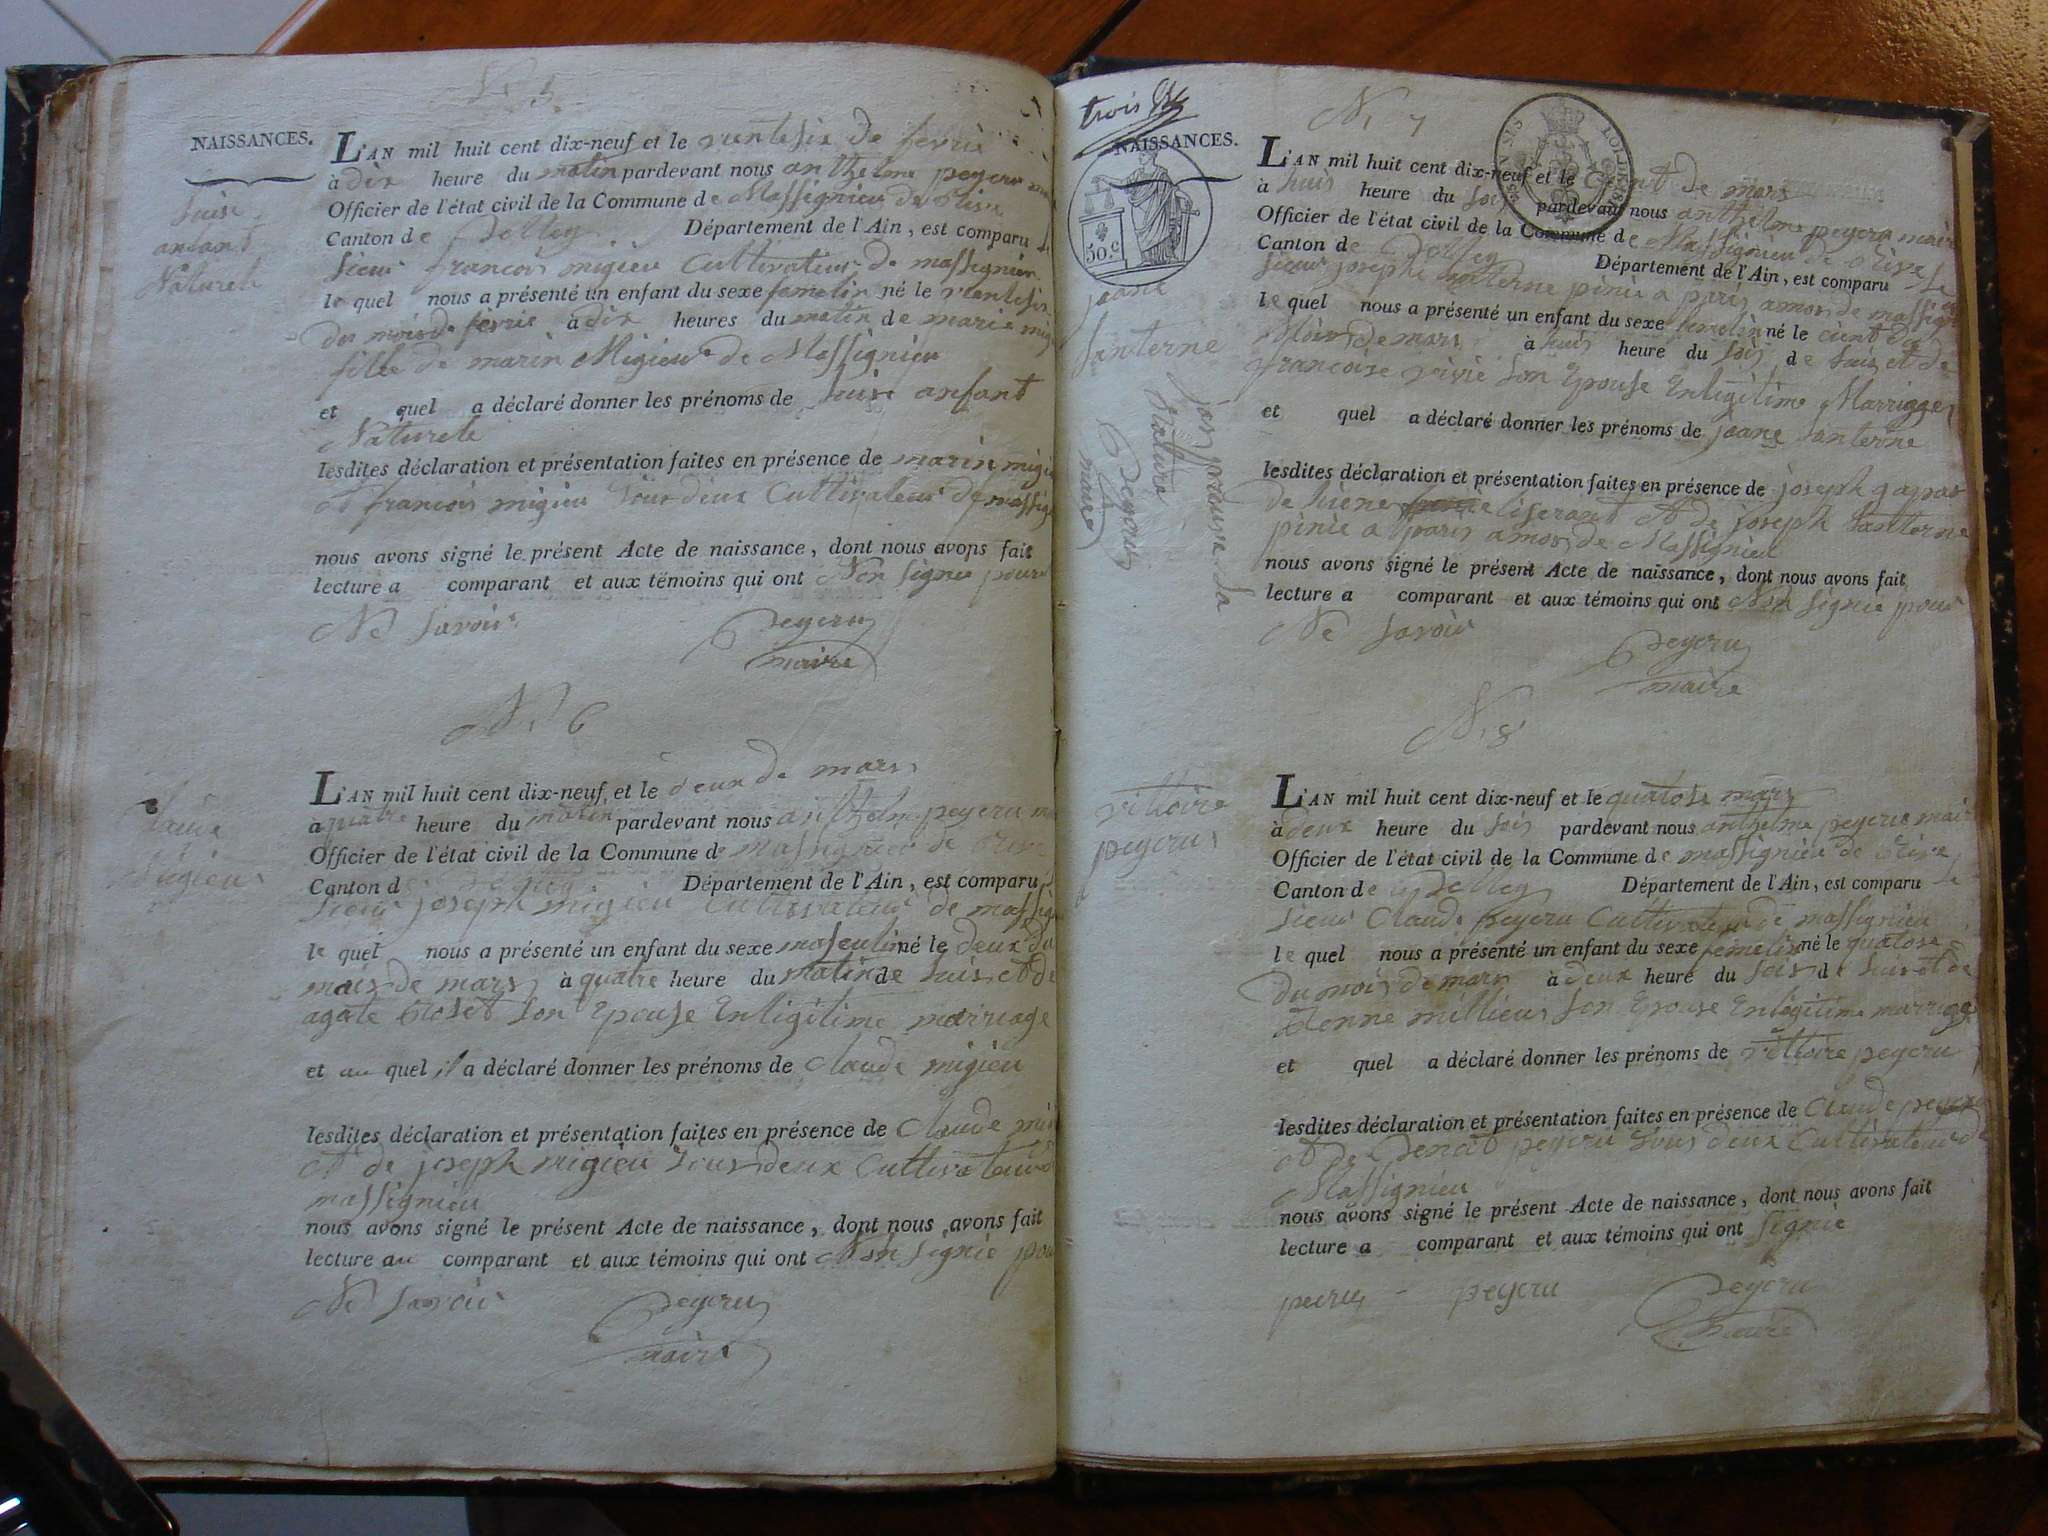 N. 5
NAISSANCES.
L'AN mil huit cent dix-neuf et le ventesix de fevrié
à dix heure du matin pardevant nous anthelme peyeru
Officier de l'état civil de la Commune de Massignieu de Rive
Canton de Belley Département de l'Ain, est comparu le
sieur francois migieu Cultivateur de massignieu
le quel nous a présenté un enfant du sexe femelin né le ventesix
du mois de fevrié à dix heures du matin de marie
fille de marin Migieu de Massignieu
et quel a déclaré donner les prénoms de luise anfant
Naturele
lesdites déclaration et présentation faites en présence de marin
et francois migieu tous deux Cultivateur de
nous avons signé le présent Acte de naissance, dont nous avons fait
lecture a comparant et aux témoins qui ont Non signié pour
Ne savoir
Peyeru
maire
luise
anfant
Naturele
N. 6
L'AN mil huit cent dix-neuf et le deux de mars
à quatre heure du matin pardevant nous anthelme peyeru
Officier de l'état civil de la Commune de massignieu de Rive
Canton de Belley Département de l'Ain, est comparu
sieur joseph migieu Cultivateur de
le quel nous a présenté un enfant du sexe masculin né le deux du
mois de mars à quatre heure du matin de luis et de
agate son Epouse En ligitime marriage
et au quel il a déclaré donner les prénoms de Claude migieu
lesdites déclaration et présentation faites en présence de Claude
et de joseph migieu tous deux Cultivateur
massignieu
nous avons signé le présent Acte de naissance, dont nous avons fait
lecture au comparant et aux témoins qui ont Non signié pour
Ne savoir
Peyeru
maire
Claude
migieu
trois
N. 7
NAISSANCES.
50.c
L'AN mil huit cent dix-neuf et le cient de mars
à huis heure du soir pardevant nous anthelme peyeru maire
Officier de l'état civil de la Commune de Massignieu de Rive
Canton de Belley Département de l'Ain, est comparu le
sieur josephe santerne pinié a paris amors de
le quel nous a présenté un enfant du sexe femelin né le cient du
Mois de mars à huis heure du soir de luis et de
francoise vivié son Epouse En ligitime Marriage
et quel a déclaré donner les prénoms de joane santerne
lesdites déclaration et présentation faites en présence de joseph
de et de joseph santerne
pinié a paris amors de Massignieu
nous avons signé le présent Acte de naissance, dont nous avons fait
lecture a comparant et aux témoins qui ont Non signié pour
Ne savoir
Peyeru
maire
joane
santerne
N. 8
L'AN mil huit cent dix-neuf et le quatose mars
à deux heure du soir pardevant nous anthelme peyeru maire
Officier de l'état civil de la Commune de massignieu de Rive
Canton de Belley Département de l'Ain, est comparu le
sieur Claude peyeru Cultivateur de massignieu
le quel nous a présenté un enfant du sexe femelin né le quatose
du mois de mars à deux heure du soir de luis et de
millieu son Epouse En ligitime marriage
et quel a déclaré donner les prénoms de vittoire peyeru
lesdites déclaration et présentation faites en présence de Claude peyeru
et de Benoit peyeru tous deux Cultivateur de
Massignieu
nous avons signé le présent Acte de naissance, dont nous avons fait
lecture a comparant et aux témoins qui ont signié
peyeru
Peyeru
maire
vittoire
peyeru